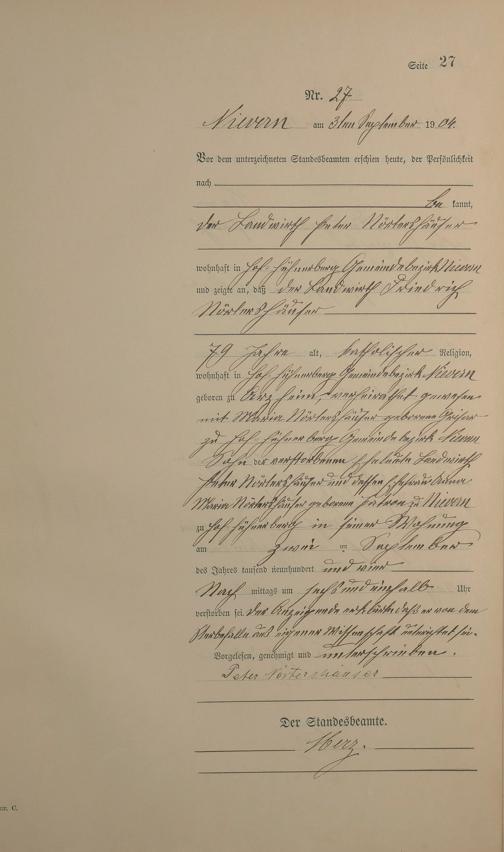 Seite 27
Nr. 27
Nievern am 3ten September 1904.
Vor dem unterzeichneten Standesbeamten erschien heute, der Persönlichkeit
nach
be kannt,
der Landwirth Peter Nörtershäuser
wohnhaft in Hof Hühnerberg Gemeindebezirk Nievern
und zeigte an, daß der Landwirth Friedrich
Nörtershäuser
79 Jahre alt, katholischer Religion,
wohnhaft in Hof Hühnerberg Gemeindebezirk Nievern
geboren zu Arzheim, verheirathet gewesen
mit Maria Nörtershäuser geborene
zu Hof Hühnerberg Gemeindebezirk Nievern
Sohn der verstorbenen Eheleute Landwirth
Peter Nörtershäuser und dessen Ehefrau Anna
Maria Nörtershäuser geborene zu Nievern
zu Hof Hühnerberg in seiner Wohnung
am zwei ten September
des Jahres tausend neunhundert und vier
Nach mittags um sechs und einhalb Uhr
verstorben sei. Der Anzeigende erklärte daß er von dem
Sterbefalle aus eigener Wissenschaft unterrichtet sei.
Vorgelesen, genehmigt und unterschrieben.
Peter Nörtershäuser
Der Standesbeamte.
Herz.